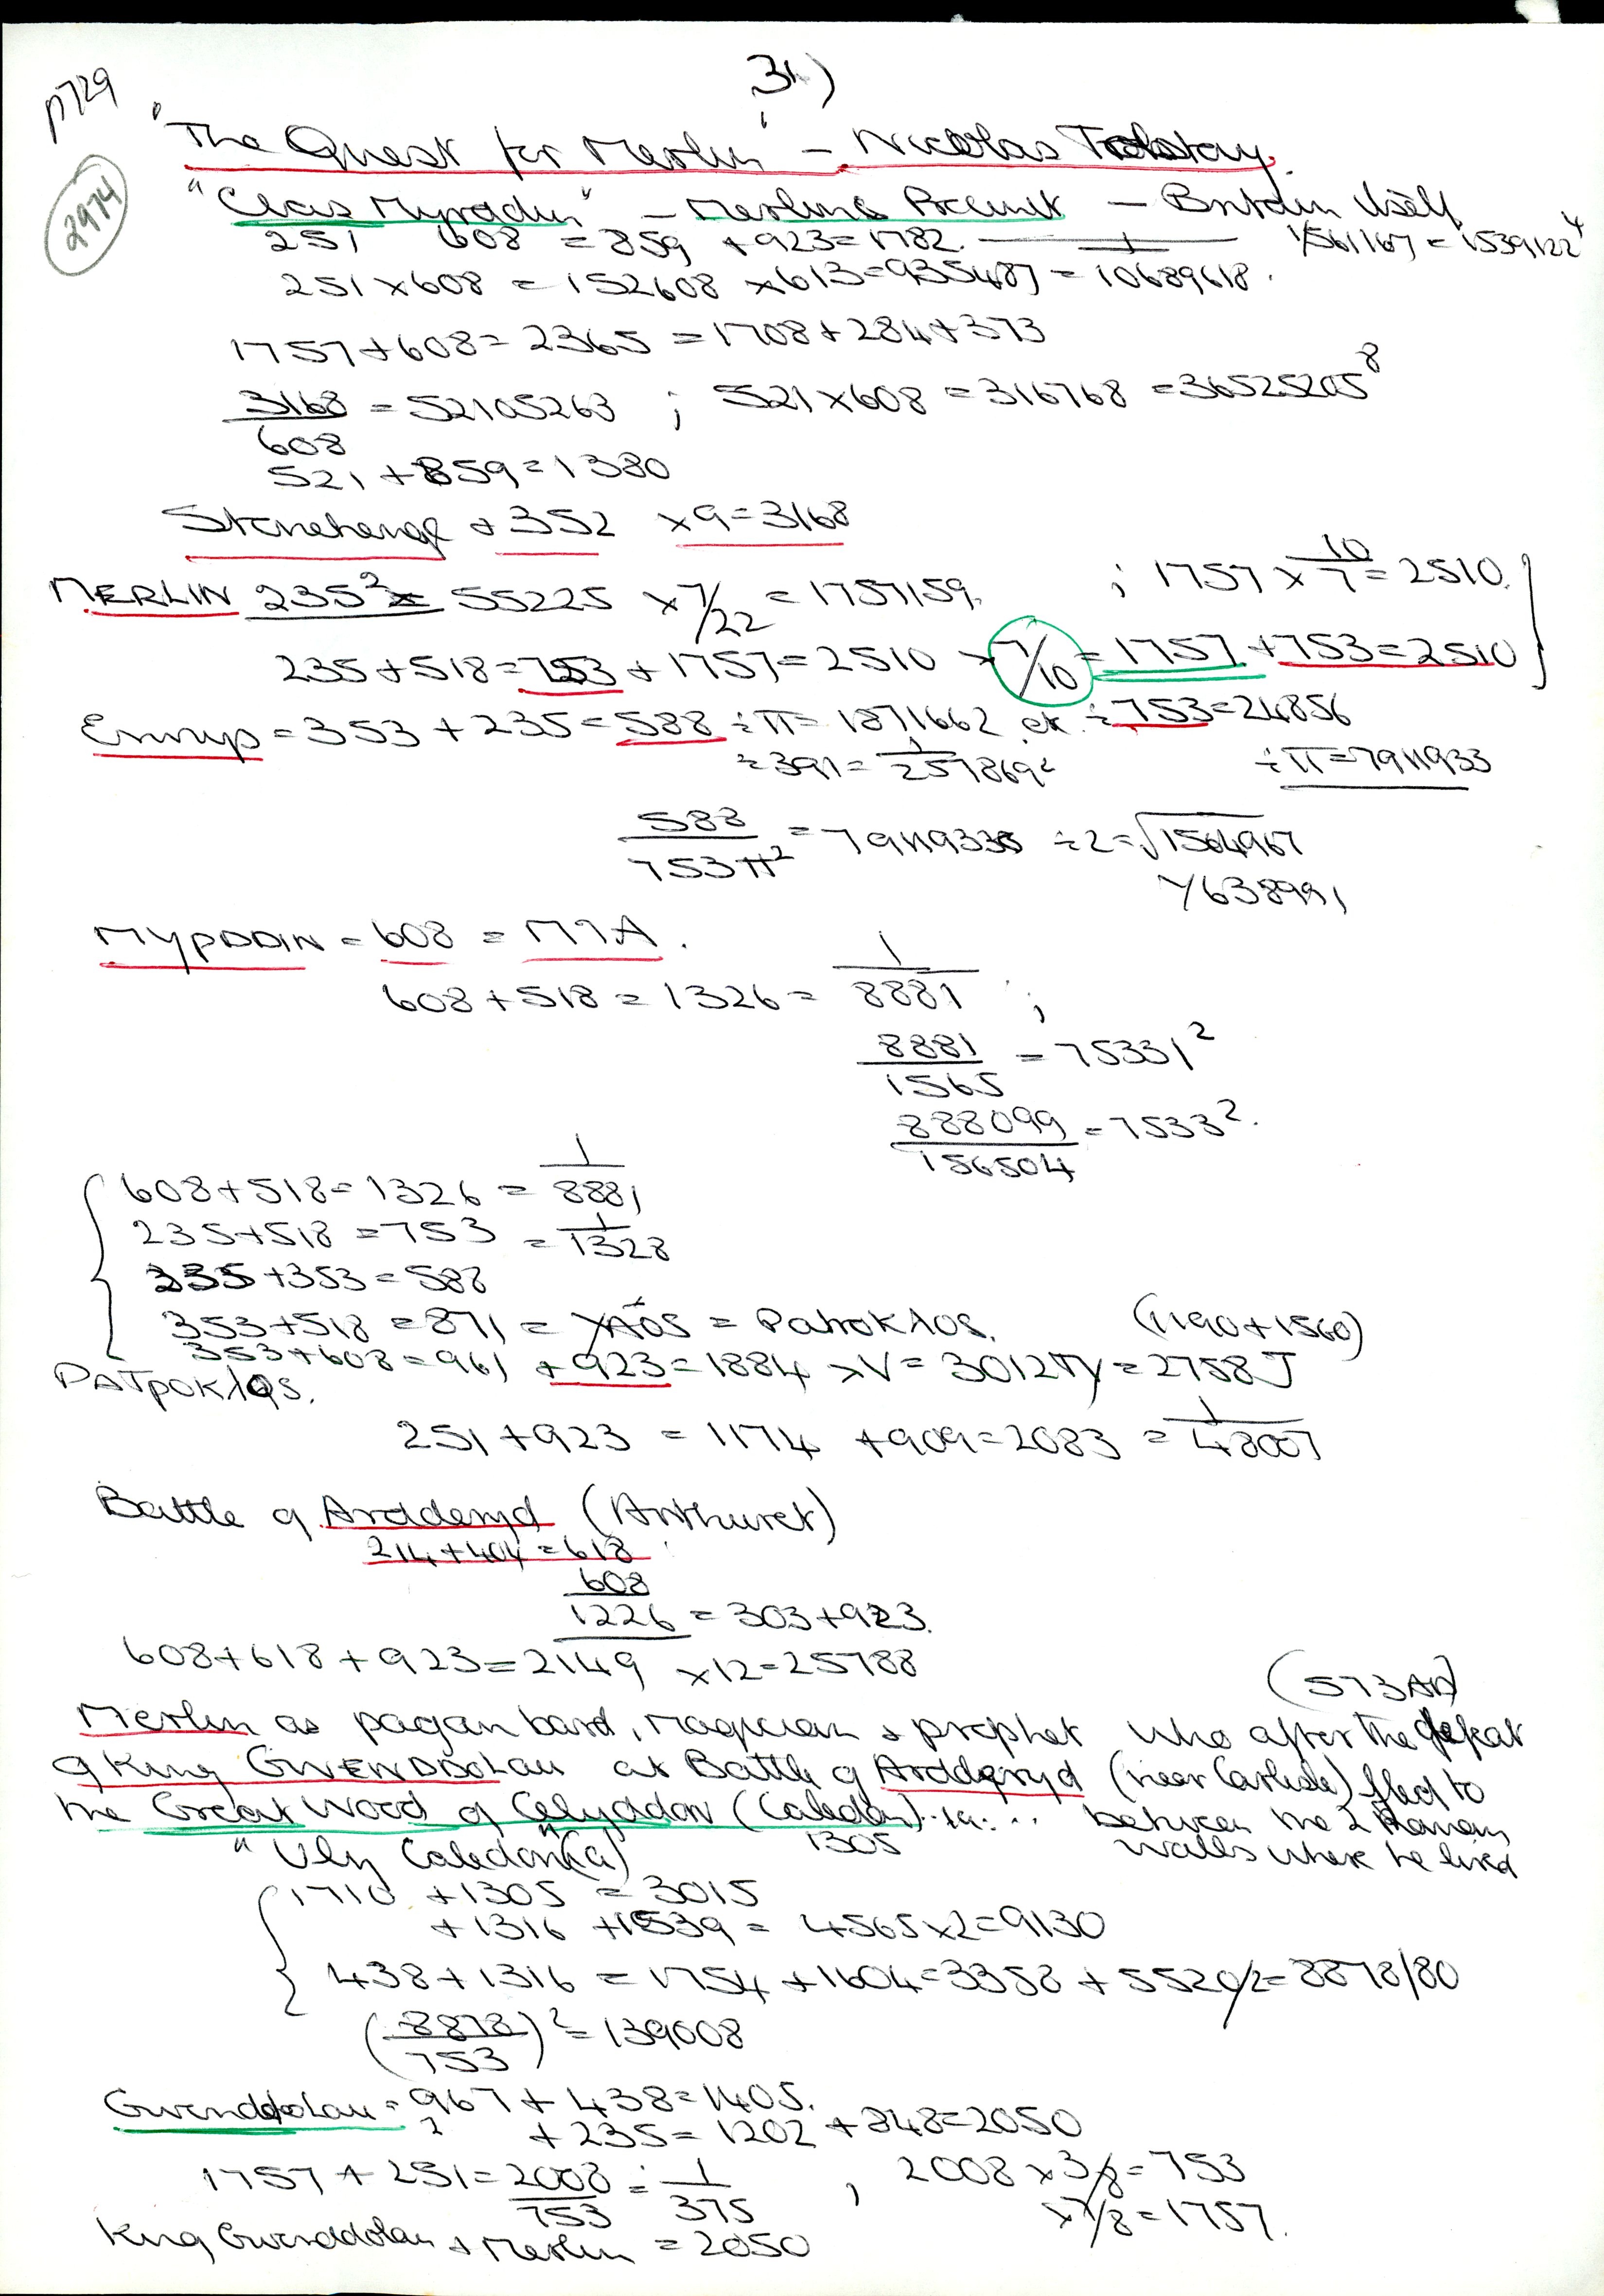 31)
p729
2974
"The Quest for Merlin" - Nicolas Tolstoy.
"Clas Myrddin" - Merlins Precinct - Britain itself
251 608 = 859 + 923 = 1782. 1/561167 = 1539122⁴
251 x 608 = 152608 x 613 = 935487 = 1/10689618.
1757 + 608 = 2365 = 1708 + 284 + 373
3168/608 = 52105263 ; 521 x 608 = 316768 = 36525205⁸
521 + 859 = 1380
Stonehenge + 352 x 9 = 3168
MERLIN 235² = 55225 x 7/22 = 1757159. ; 1757 x 10/7 = 2510.
235 + 518 = 753 + 1757 = 2510 x 7/10 = 1757 + 753 = 2510
Emrys = 353 + 235 = 588 ÷ π = 1871662 or ÷ 753 = 24856
÷ 391 = 1/257869² ÷ π = 7911933
588/753π² = 79119336 ÷ 2 = √1564967
1/638991
MYPDDIN = 608 = M7A.
608 + 518 = 1326 = 1/8881 ;
8881/1565 = 75331²
888099/156504 = 7533².
608 + 518 = 1326 = 1/8881
235 + 518 = 753 = 1/1328
235 + 353 = 588
353 + 518 = 871 = XAOS = Patroklos. (1190 + 1560)
353 + 608 = 961 + 923 = 1884 x V = 3012πy = 2758 J
PATpOKλOS.
251 + 923 = 1174 + 909 = 2083 = 1/48007
Battle of Arddenyd (Arthuret)
214 + 404 = 618
608
1226 = 303 + 923.
608 + 618 + 923 = 2149 x 12 = 25788
(573AD)
Merlin as pagan bard, magician & prophet who after the defeat
of King GWENDDOLau at Battle of Arddyryd (near Carlisle) fled to
the Great Wood of Celyddon (Caledon) ... between the 2 Roman
1305 walls where he lived
"Uly Caledon"(ia)
1710 + 1305 = 3015
+ 1316 + 1539 = 4565 x 2 = 9130
438 + 1316 = 1754 + 1604 = 3358 + 5520/2 = 8878/80
(8878/753)² = 139008
Gwenddolau = 967 + 438 = 1405.
2 + 235 = 1202 + 848 = 2050
1757 + 251 = 2008/753 = 1/375 , 2008 x 3/8 = 753
x 7/8 = 1757.
King Gwenddolau & Merlin = 2050